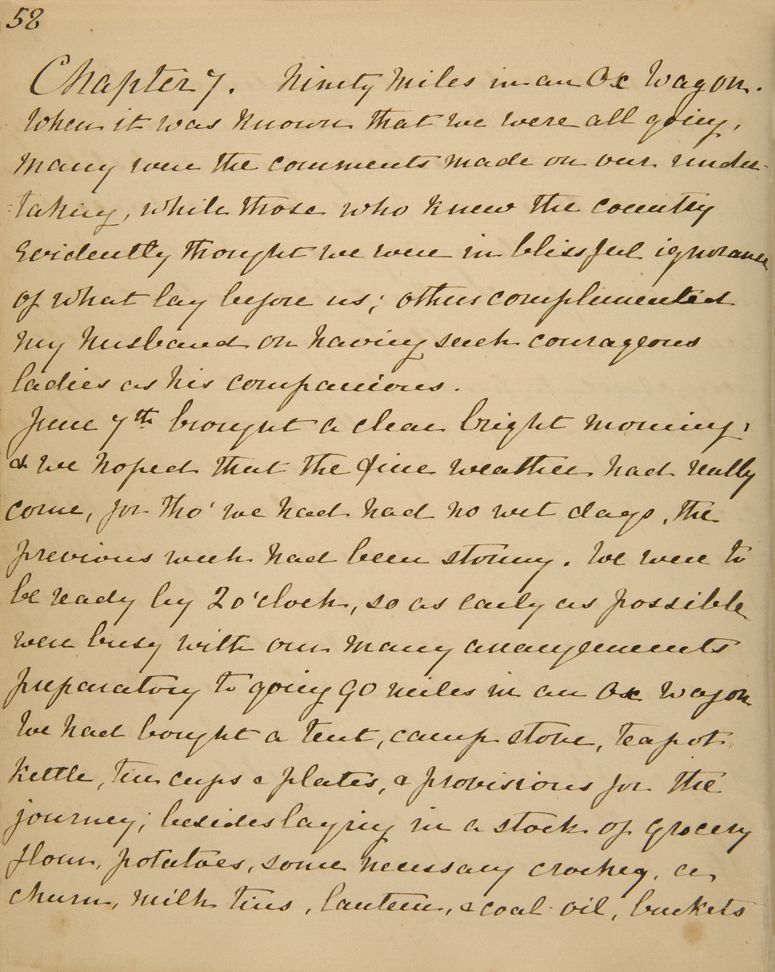 58
Chapter 7. Ninety Miles in an Ox Wagon.
When it was known that we were all going,
many were the comments made on our under-
-taking, while those who knew the country
evidently thought we were in blissful ignorance
of what lay before us; others complimented
my husband on having such courageous
ladies as his companions.
June 7th brought a clear bright morning,
& we hoped that the fine weather had really
come, for tho' we had had no wet days, the
previous week had been stormy. We were to
be ready by 2 o'clock, so as early as possible
were busy with our many arrangements
preparatory to going 90 miles in an Ox Wagon
We had bought a tent, camp stove, teapot,
kettle, tin cups & plates, & provisions for the
journey; besides laying in a stock of grocery
flour, potatoes, some necessary crockery, a
churn, milk tins, lantern, & coal-oil, buckets